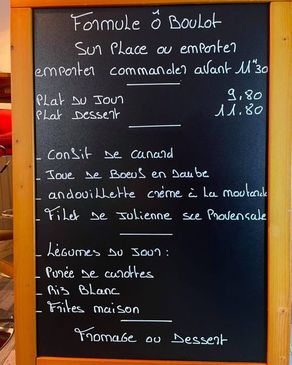 Formule ô Boulot
Sur Place ou emporter
emporter commander avant 11"30
Plat du Jour 9,80
Plat Dessert 11,80
- Confit de canard
- Joue de Boeuf en Daube
- andouillette crème à la moutarde
- Filet de Julienne sce Provençale
- Légumes du Jour :
- Purée de carottes
- Riz Blanc
- Frites maison
Fromage ou Dessert